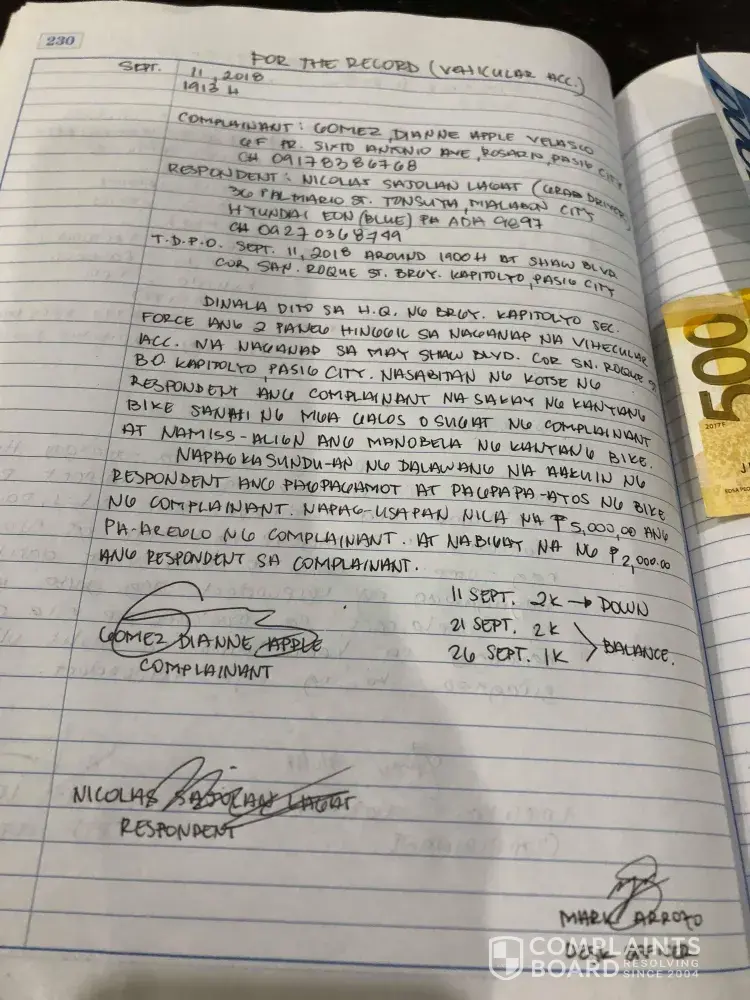 230
FOR THE RECORD (VEHICULAR ACC.)
SEPT. 11, 2018
1913 H
COMPLAINANT : GOMEZ, DIANNE APPLE VELASCO
GF PR. SIXTO ANTONIO AVE, ROSARIO, PASIG CITY
CH 09178386768
RESPONDENT : NICOLAS SAJOLAN LAGAT (GRAB DRIVER)
36 PALMARIO ST. TONSUYA, MALABON CITY
HYUNDAI EON (BLUE) PH ADA 9897
CH 09270368749
T.D.P.O. SEPT. 11, 2018 AROUND 1900H AT SHAW BLVD
COR SAN. ROQUE ST. BRGY. KAPITOLYO, PASIG CITY
DINALA DITO SA H.Q. NG BRGY. KAPITOLYO SEC.
FORCE ANG 2 PANIG HINGGIL SA NAGANAP NA VIHECULAR
ACC. NA NAGANAD SA MAY SHAW BLVD. COR SN. ROQUE ST
BO. KAPITOLYO, PASIG CITY. NASABITAN NG KOTSE NG
RESPONDENT ANG COMPLAINANT NA SAKAY NG KANYANG
BIKE SANHI NG MGA GALOS O SUGAT NG COMPLAINANT
AT NAMISS-ALIGN ANG MANOBELA NG KANYANG BIKE.
NAPAGKASUNDU-AN NG DALAWANG NA AAKUIN NG
RESPONDENT ANG PAGPAGAMOT AT PAGPAPA-AYOS NG BIKE
NG COMPLAINANT. NAPAG-USAPAN NILA NA ₱5,000,00 ANG
PA-AREGLO NG COMPLAINANT. AT NABIGAY NA NG ₱2,000.00
ANG RESPONDENT SA COMPLAINANT.
11 SEPT. 2K → DOWN
21 SEPT. 2K
26 SEPT. 1K
BALANCE.
GOMEZ DIANNE APPLE
COMPLAINANT
NICOLAS SAJOLAN LAGAT
RESPONDENT
MARK ARROYO
DESK
500
COMPLAINTS
BOARD RESOLVING
SINCE 2004